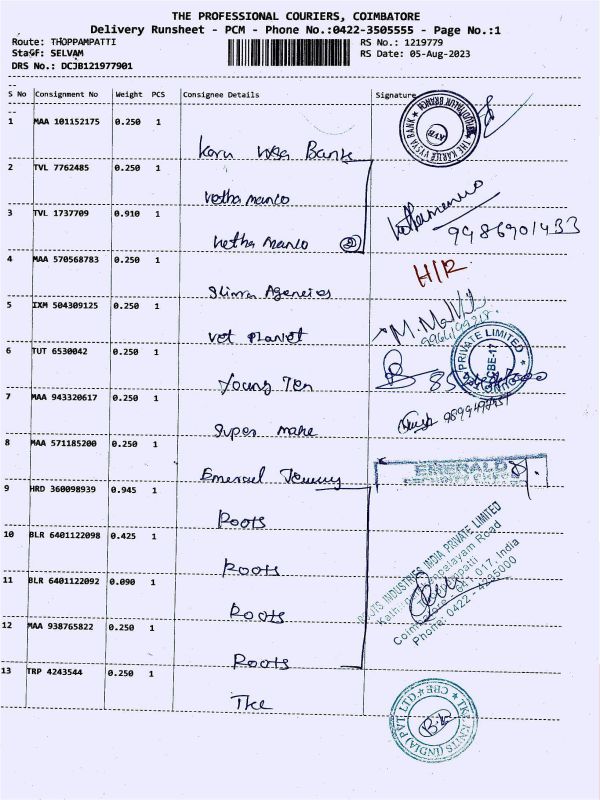 THE PROFESSIONAL COURIERS, COIMBATORE
Delivery Runsheet - PCM - Phone No.:0422-3505555 - Page No.:1
Route: THOPPAMPATTI RS No.: 1219779
Staff: SELVAM RS Date: 05-Aug-2023
DRS No.: DCJB121977901
S No Consignment No Weight PCS Consignee Details Signature
1 MAA 101152175 0.250 1 Karu Vysa Bank
THE KARUR VYSYA BANK
KVB
2 TVL 7762485 0.250 1 Vetha manco
3 TVL 1737709 0.910 1 Vetha manco
9486901433
4 MAA 570568783 0.250 1 Slimra Agencies
H/R
5 IXM 504309125 0.250 1 Vet Planet
6 TUT 6530042 0.250 1 Young Ten
PRIVATE LIMITED
CBE-17
7 MAA 943320617 0.250 1 Super make
8 MAA 571185200 0.250 1 Emerald
EMERALD
9 HRD 360098939 0.945 1 Roots
10 BLR 6401122098 0.425 1 Roots
11 BLR 6401122092 0.090 1 Roots
12 MAA 938765822 0.250 1 Roots
ROOTS INDUSTRIES INDIA PRIVATE LIMITED
Road
Coimbatore - 641 017. India
Phone: 0422 - 4235000
13 TRP 4243544 0.250 1 Tke
TKE KNITS (INDIA) PVT. LTD. CBE